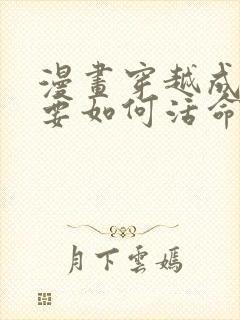 漫畫穿越成
要如何活命
月下雲嫣